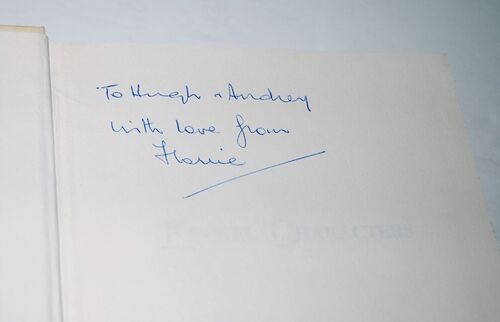 To Hugh & Audrey
with love from
Florrie
CHARACTERS